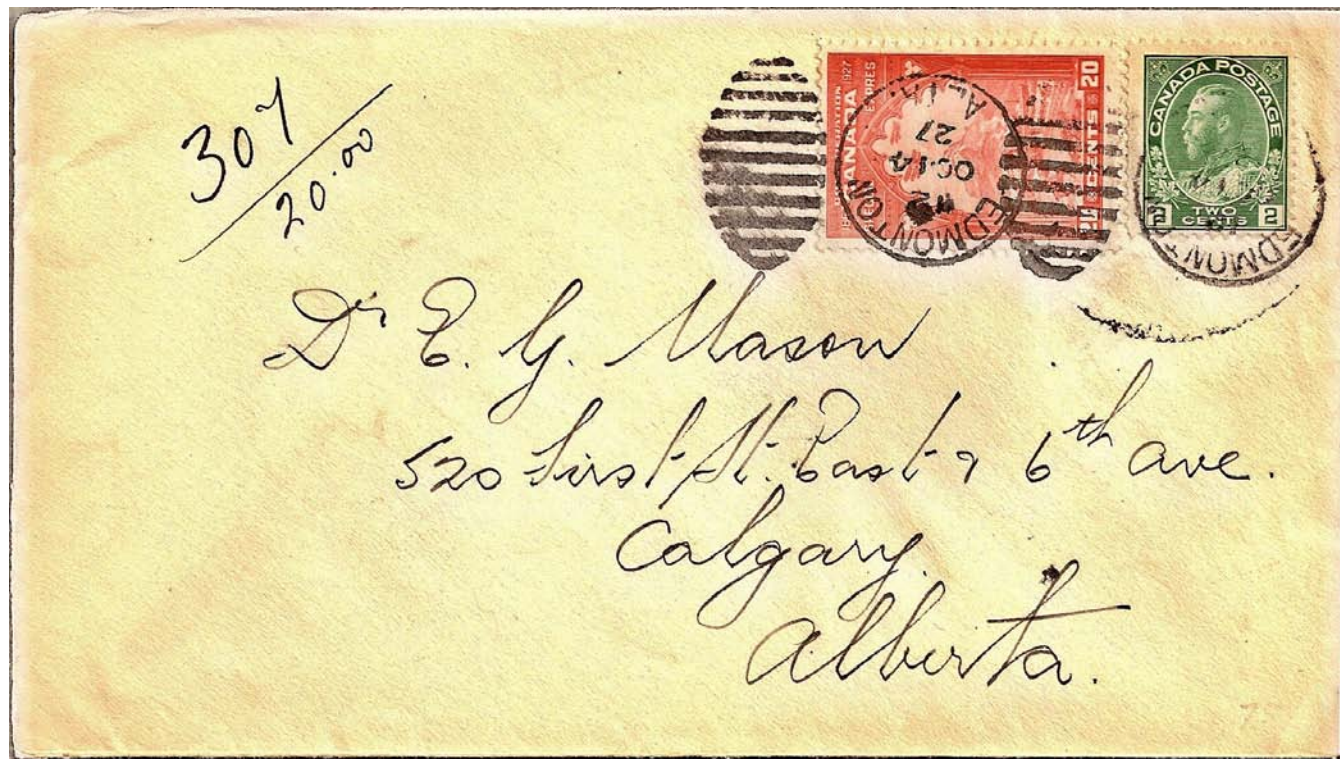 307
20.00
CANADA 1927
EXPRES
20
CENTS
EDMONTON
ALTA.
12
OC 14
27
CANADA POSTAGE
2 TWO CENTS 2
EDMONTON
14
Dr E. G. Mason
520 First St. East & 6th ave.
Calgary
Alberta.